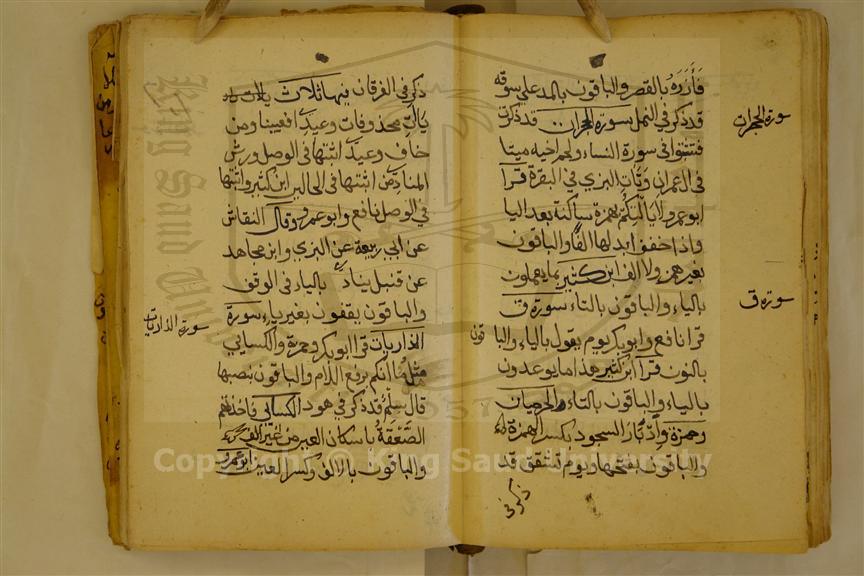 فَأزَرَهُ بالقصر والباقون بالمد على سوقه
قد ذكر في النمل سورة الحجرات قد ذكرت
فتثبتوا في سورة النساء ولحم اخيه ميتا
في العمران وتات البزي في البقرة قرأ
ابو عمرو لا يالتكم بهمزة ساكنة بعد اليا
واذا خفف ابدلها الفا والباقون
بغير همز ولا الف ابن كثير بما يعملون
بالياء والباقون بالتاء سورة ق
قرأ نافع وابو بكر يوم يقول بالياء والبا
قون
بالنون قرأ ابن كثير هذا ما يوعدون
بالياء والباقون بالتاء والحرميان
وحمزة وأدبار السجود بكسر الهمزة
والباقون بفتحها ويوم تشقق قد
ذكر في
سورة الحجرات
سورة ق
ذكر في الفرقان فيها ثلاث
محذوفات وعيد افعيينا ومن
خاف وعيد اثبتها في الوصل ورش
المناد من اثبتها في الحالين ابن كثير واثبتها
في الوصل نافع وابو عمرو وقال النقاش
عن ابي ربيعة عن البزي وابن مجاهد
عن قنبل يناد بالياء في الوقف
والباقون يقفون بغير ياء سورة
الذاريات قرأ ابو بكر وحمزة والكسائي
مثل ما انكم برفع اللام والباقون بنصبها
قال سلم قد ذكر في هود الكسائي فاخذتهم
الصَّعْقَةُ باسكان العين من غير الف
والباقون بالالف وكسر العين ابو عمرو
سورة الذاريات
Copyright © King Saud University
King Saud University
1957